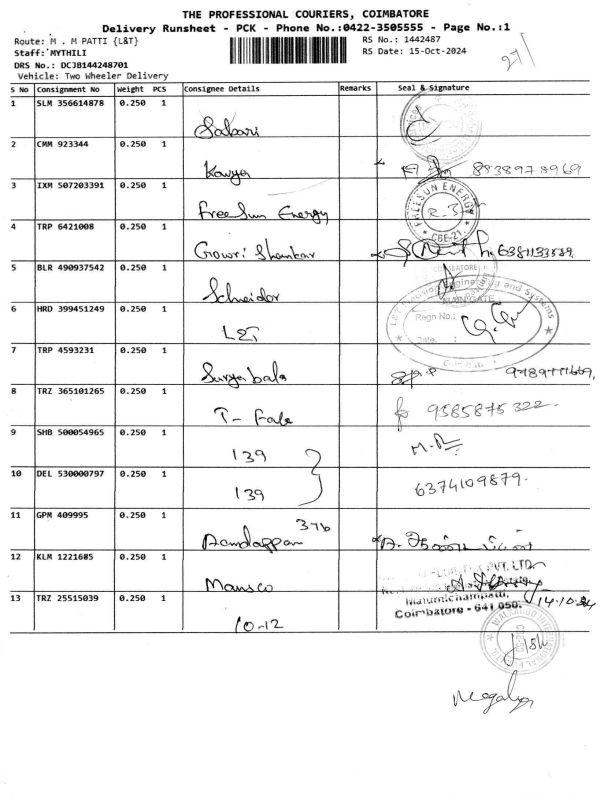 THE PROFESSIONAL COURIERS, COIMBATORE
Delivery Runsheet - PCK - Phone No.:0422-3505555 - Page No.:1
Route: M . M PATTI {L&T} RS No.: 1442487
Staff: MYTHILI RS Date: 15-Oct-2024
DRS No.: DCJB144248701
Vehicle: Two Wheeler Delivery
S No Consignment No Weight PCS Consignee Details Remarks Seal & Signature
1 SLM 356614878 0.250 1
Sabari
2 CMM 923344 0.250 1
Kavya 8838978969
3 IXM 507203391 0.250 1
FreeSun Energy FREESUN ENERGY CBE-21
4 TRP 6421008 0.250 1
Gowri Shankar
5 BLR 490937542 0.250 1 COIMBATORE
Schneidor Engineering and Systems
MAIN GATE
6 HRD 399451249 0.250 1 Regn No.:
L&T Date. :
7 TRP 4593231 0.250 1
Suryabala
8 TRZ 365101265 0.250 1
T- Fabe 9585875322
9 SHB 500054965 0.250 1
139
10 DEL 530000797 0.250 1
139 6374109879.
11 GPM 409995 0.250 1
376
12 KLM 1221685 0.250 1
PVT. LTD.
Mansco
Malumichampatti,
13 TRZ 25515039 0.250 1 14.10.24
Coimbatore - 641 050.
10-12